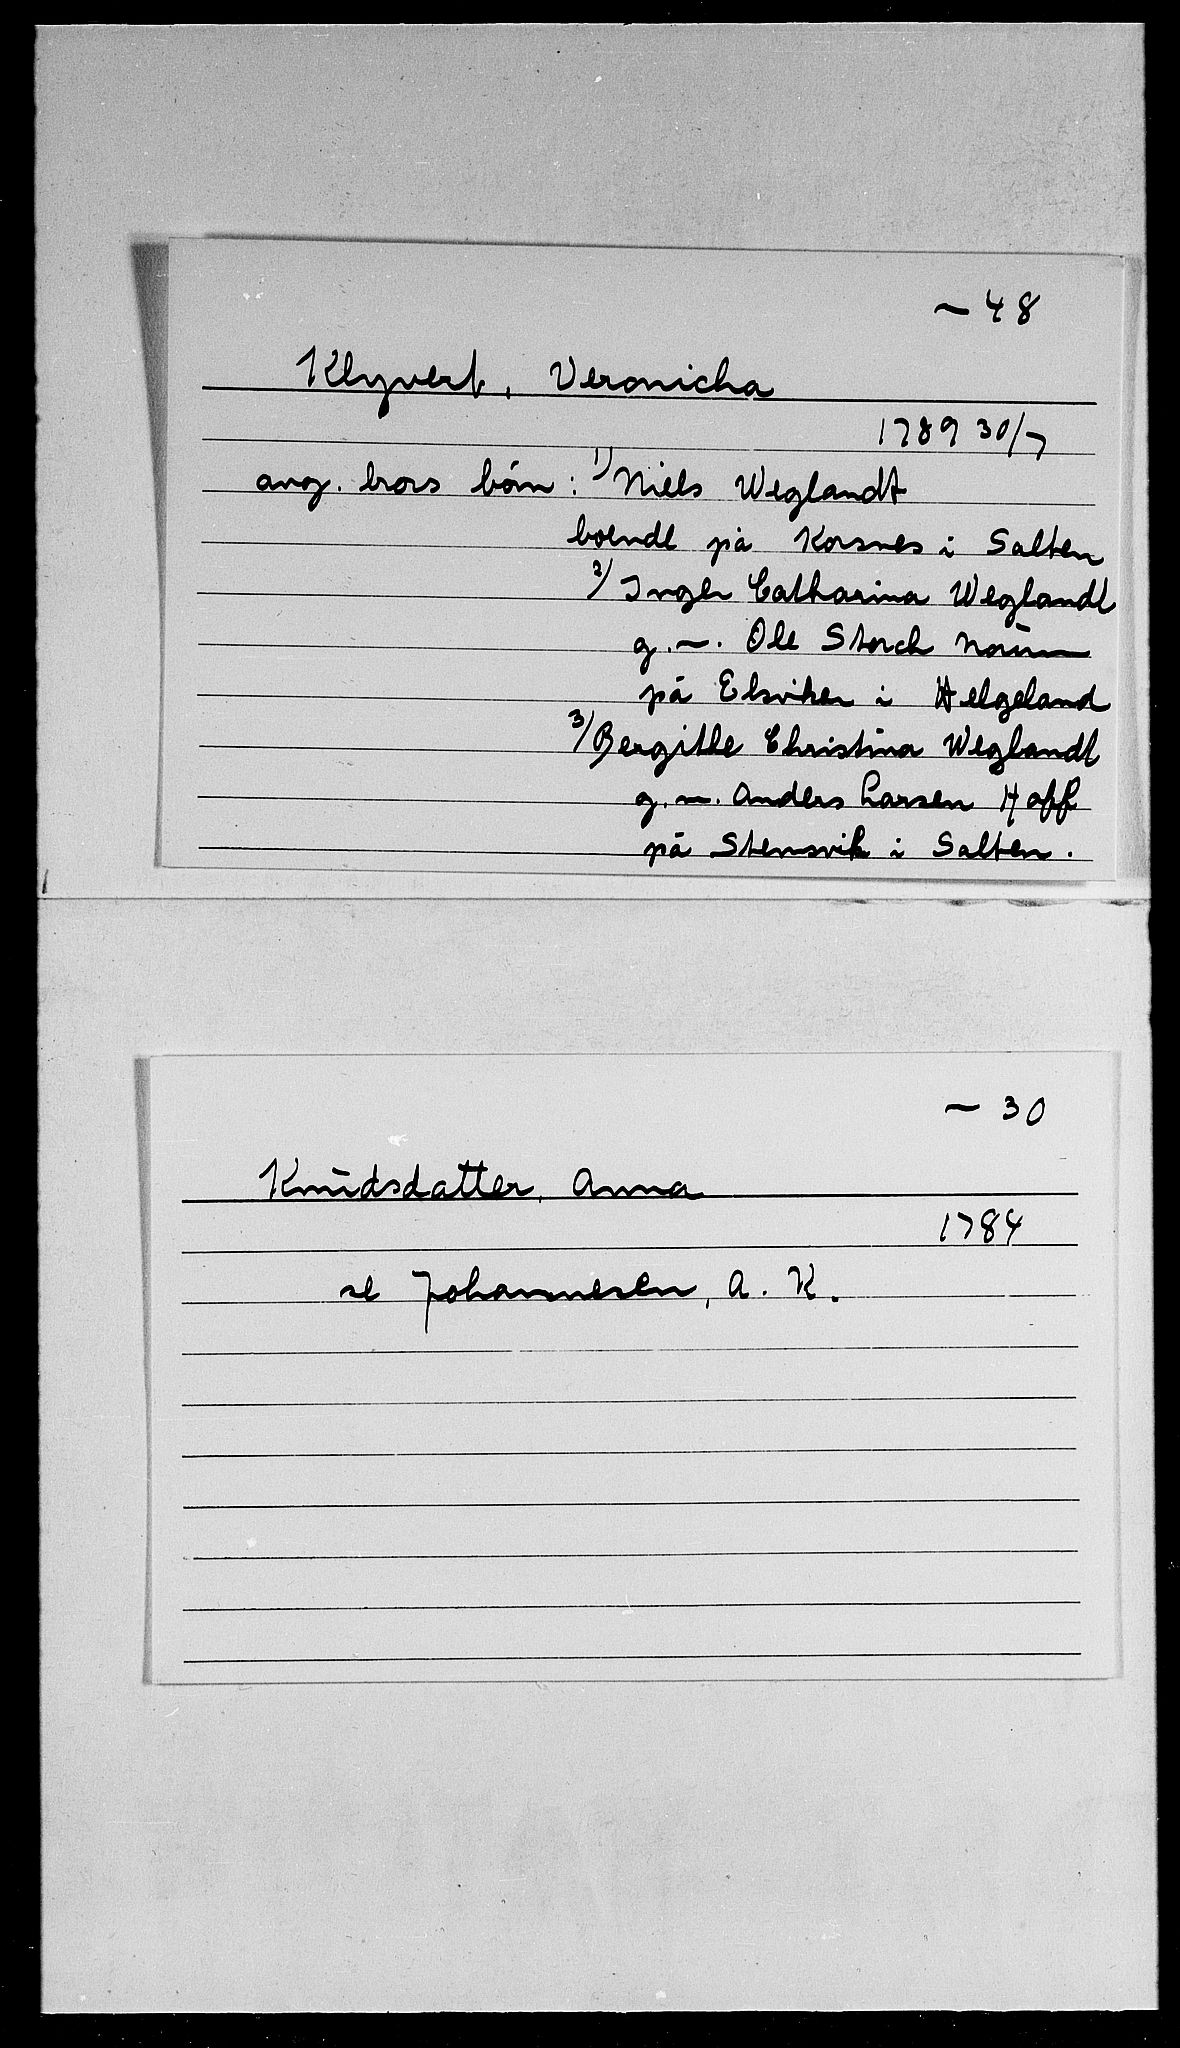 ~ 48
Klyvert, Veronicha
1789 30/7
avg. brors börn: 1) Niels Weglandt
boende på Korsnes i Salten
2/ Inger Catharina Weglandt
g. m. Ole Storch
på Elsviken i Helgeland
3/ Bergithe Christina Weglandt
g. m. Anders Larsen Hoff
på Stensvik i Salten.
~ 30
Knudsdatter, Anna
1784
se Johannesen, A. K.